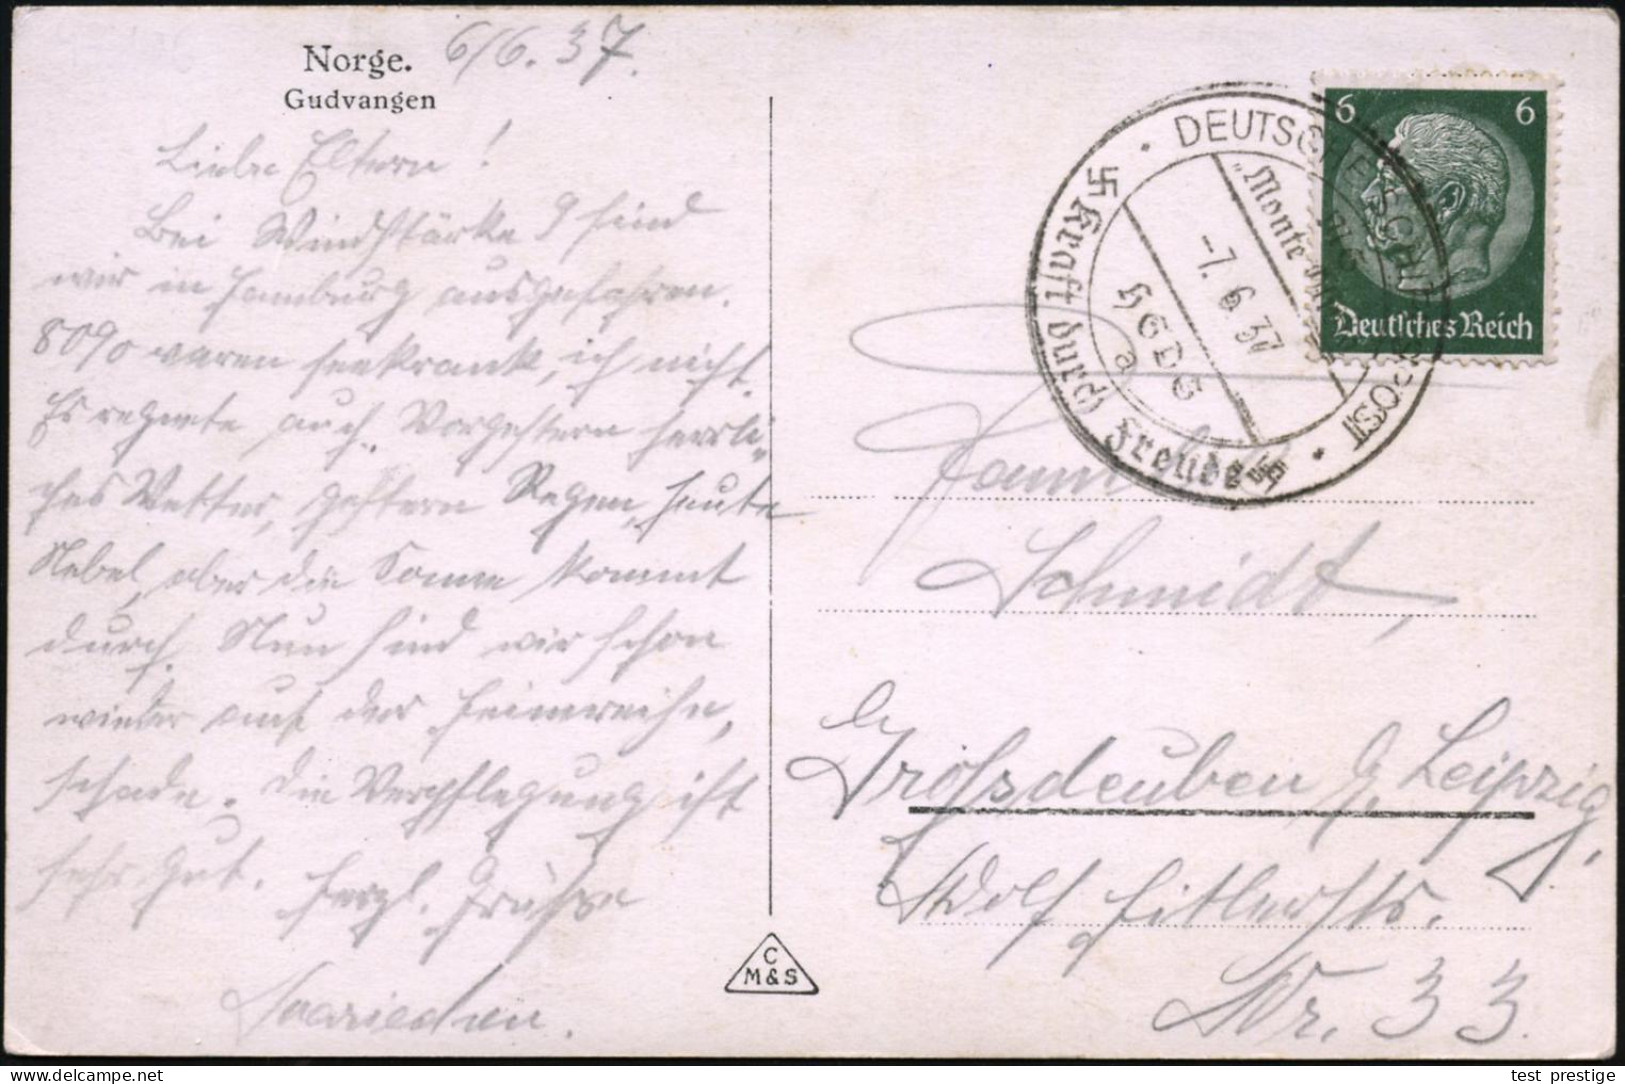 Norge.
Gudvangen
6/6. 37.
Liebe Eltern!
Bei Windstärke 9 sind
wir in Hamburg ausgefahren.
80% waren seekrank, ich nicht.
Es regnete auch. Vorgestern herrli-
ches Wetter, gestern Regen, heute
Nebel, aber die Sonne kommt
durch. Nun sind wir schon
wieder auf der Heimreise,
schade. Die Verpflegung ist
sehr gut. Herzl. Grüsse
C
M&S
6 6
Deutsches Reich
DEUTSCHE SCHIFFSPOST
"Monte
-7. 6. 37
HSDG
a
Kraft durch Freude
Familie
Schmidt,
Grossdeuben b. Leipzig,
Adolf Hitlerstr.
Nr. 33.
test_prestige